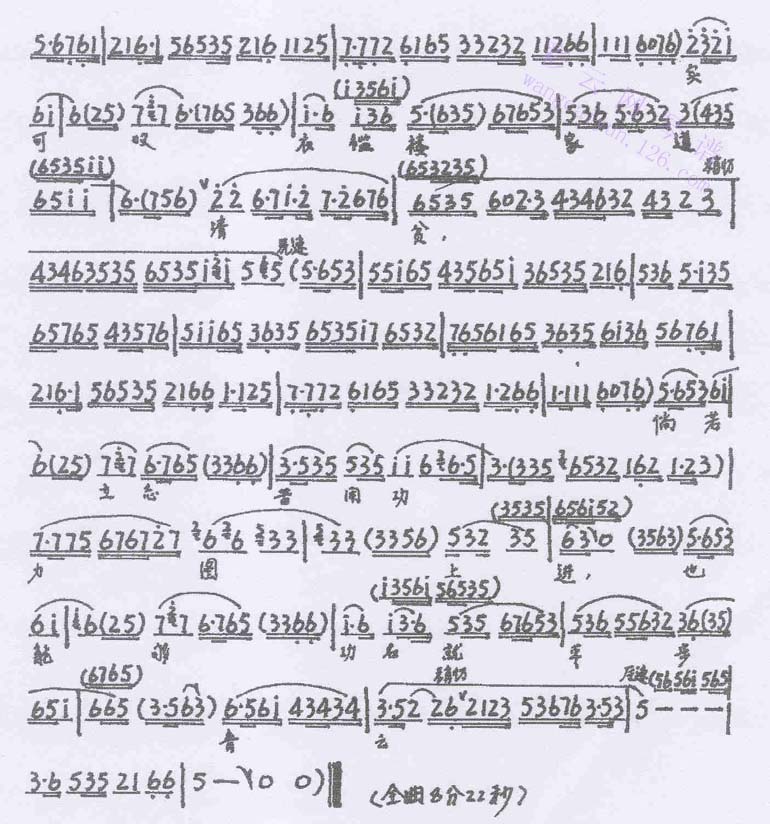 5·6761|216·1 56535 216 1125|7·772 6165 33232 11266|111 6076)2321
实
6i|6(25) 7 7 6·(765 366)|i·6 i36 5·(635) 67653|536 5·632 3(435
(i356i)
可 叹 衣 褴 褛 家 道
(6535ii) (653235) 稍切
65ii|6·(756) 22 6·7i·2 7·2676|6535 602·3 434632 43 2 3|
清 贫,
43463535 6535i i 5 5 (5·653|55i65 43565i 36535 216|536 5·i35
65765 43576|5ii65 3635 6535i7 6532|7656165 3635 6i36 56761|
216·1 56535 2166 1·125|7·772 6165 33232 1·266|1·111 6076)5·6536i|
倘 若
6(25) 7 7 6·765 (3366)|3·535 535 ii 6 6·5|3·(335 6532 162 1·23)|
立 志 苦 用 功
(3535|656i52)
7·775 676727 6 6 33|33 (3356) 532 35|63 0 (3563)5·653
力 图 上 进, 也
(i356i 56535)
6i|6(25) 7 7 6·765 (3366)|i·6 i3·6 535 67653|536 55632 36(35)
能 够 功 名 就 平 步
(6765) 稍切 (5656i 565|
65i|665 (3·563) 6·56i 43434|3·52 26 2123 53676 3·53|5 - - -|
青 云
3·6 535 21 66|5 - 0 0)|
(全曲8分22秒)